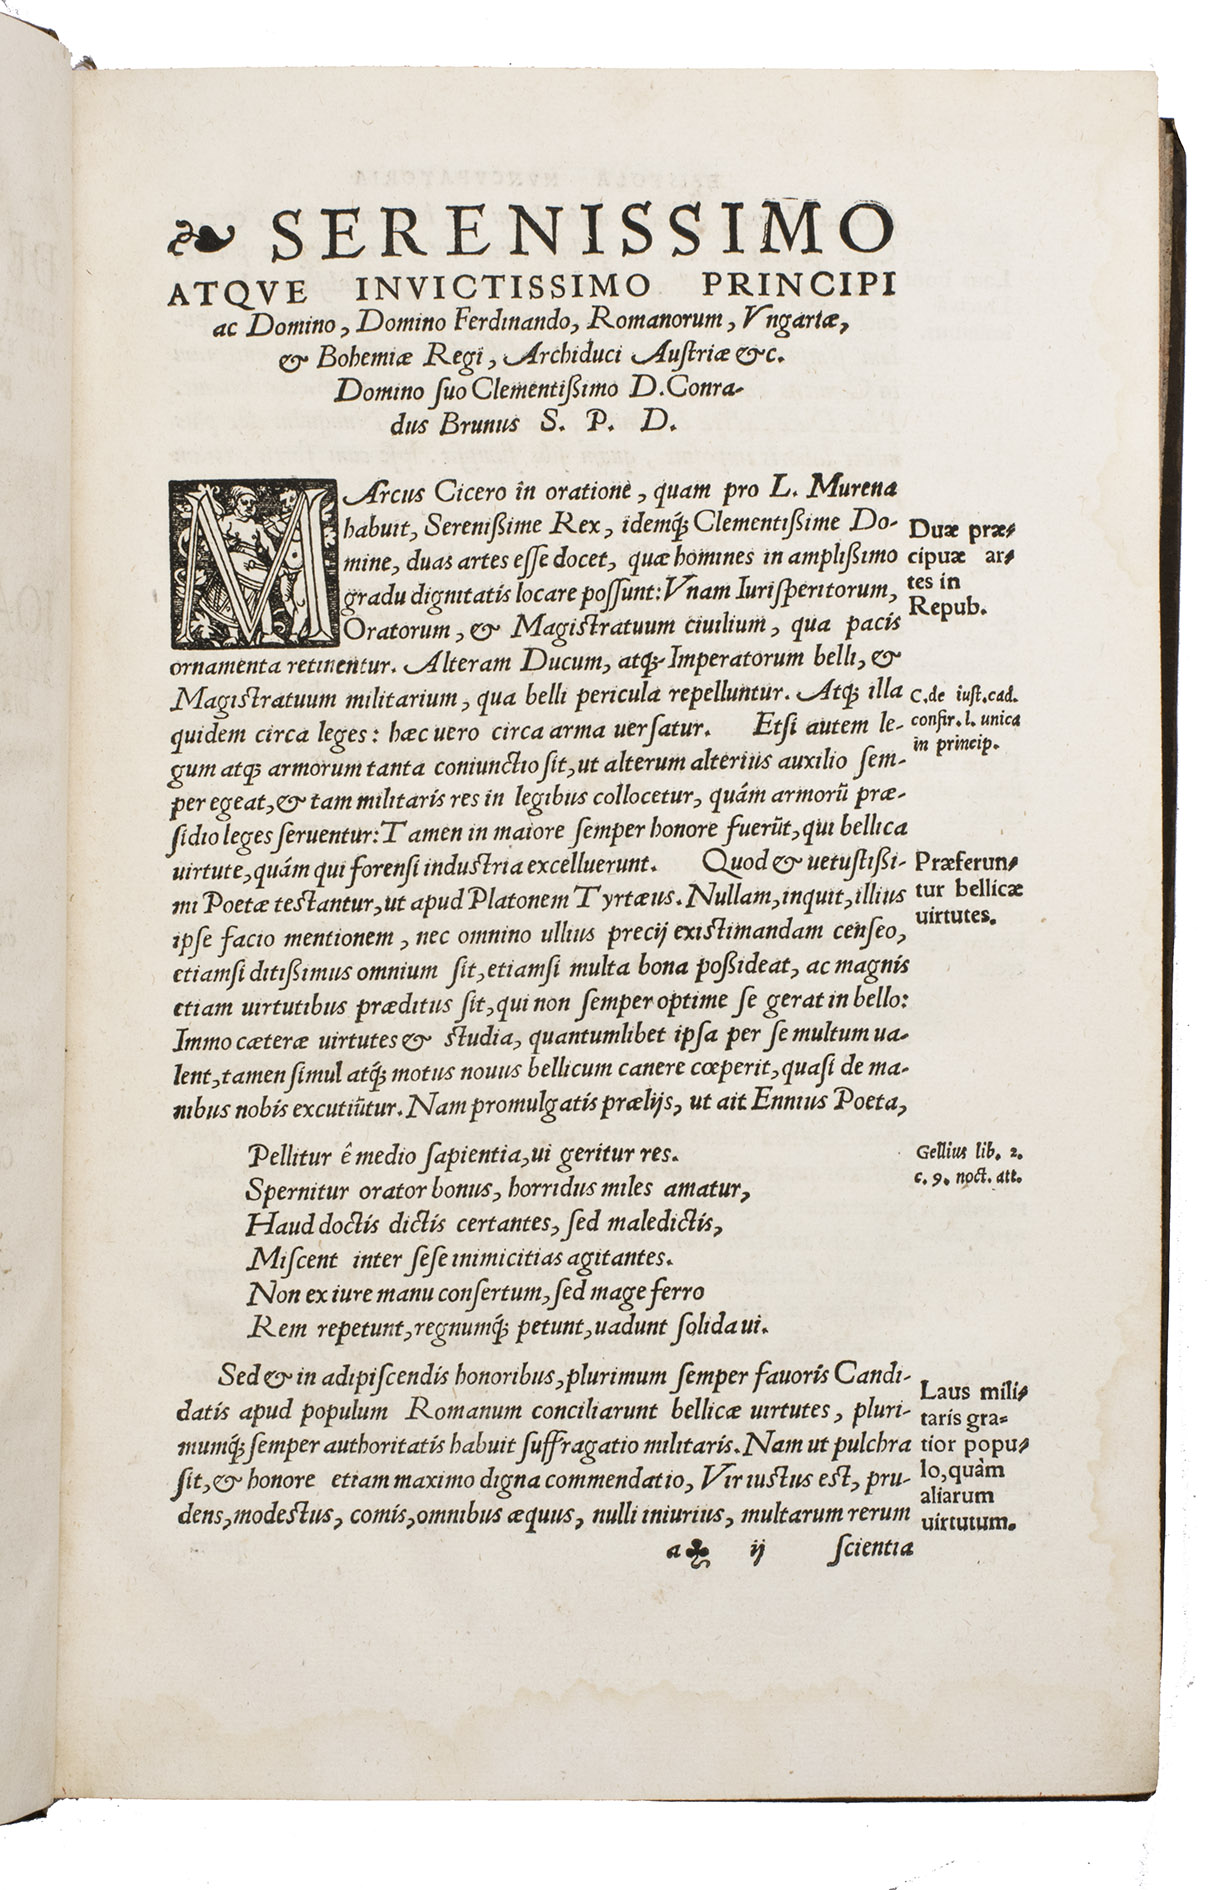 ❧ SERENISSIMO
ATQVE INVICTISSIMO PRINCIPI
ac Domino, Domino Ferdinando, Romanorum, Vngariæ,
& Bohemiæ Regi, Archiduci Austriæ &c.
Domino suo Clementißimo D. Conra-
dus Brunus S. P. D.
MArcus Cicero in oratione, quam pro L. Murena
habuit, Serenißime Rex, idemq́; Clementißime Do-
mine, duas artes esse docet, quæ homines in amplißimo
gradu dignitatis locare possunt: Vnam Iurisperitorum,
Oratorum, & Magistratuum ciuilium, qua pacis
ornamenta retinentur. Alteram Ducum, atq; Imperatorum belli, &
Magistratuum militarium, qua belli pericula repelluntur. Atq; illa
quidem circa leges: hæc uero circa arma uersatur. Etsi autem le-
gum atq; armorum tanta coniunctio sit, ut alterum alterius auxilio sem-
per egeat, & tam militaris res in legibus collocetur, quám armorū præ-
sidio leges seruentur: Tamen in maiore semper honore fuerūt, qui bellica
uirtute, quám qui forensi industria excelluerunt. Quod & uetustißi-
mi Poetæ testantur, ut apud Platonem Tyrtæus. Nullam, inquit, illius
ipse facio mentionem, nec omnino ullius precij existimandam censeo,
etiamsi ditißimus omnium sit, etiamsi multa bona poßideat, ac magnis
etiam uirtutibus præditus sit, qui non semper optime se gerat in bello:
Immo cæteræ uirtutes & studia, quantumlibet ipsa per se multum ua-
lent, tamen simul atq́; motus nouus bellicum canere cœperit, quasi de ma-
nibus nobis excutiūtur. Nam promulgatis prælijs, ut ait Ennius Poeta,
Pellitur ê medio sapientia, ui geritur res.
Spernitur orator bonus, horridus miles amatur,
Haud doctis dictis certantes, sed maledictis,
Miscent inter sese inimicitias agitantes.
Non ex iure manu consertum, sed mage ferro
Rem repetunt, regnumq́; petunt, uadunt solida ui.
Sed & in adipiscendis honoribus, plurimum semper fauoris Candi-
datis apud populum Romanum conciliarunt bellicæ uirtutes, pluri-
mumq́; semper authoritatis habuit suffragatio militaris. Nam ut pulchra
sit, & honore etiam maximo digna commendatio, Vir iustus est, pru-
dens, modestus, comis, omnibus æquus, nulli iniurius, multarum rerum
a ♣ ij scientia
Duæ præ-
cipuæ ar-
tes in
Repub.
C. de iust. cad.
confir. l. unica
in princip.
Præferun-
tur bellicæ
uirtutes.
Gellius lib. 2.
c. 9. noct. att.
Laus mili-
taris gra-
tior popu-
lo, quàm
aliarum
uirtutum.